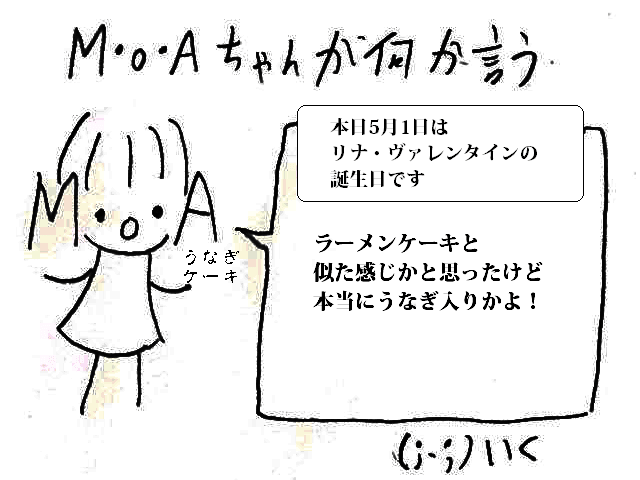 M・o・Aちゃんが何か言う
本日5月1日は
リナ・ヴァレンタインの
誕生日です
M o A
うなぎ
ケーキ
ラーメンケーキと
似た感じかと思ったけど
本当にうなぎ入りかよ！
(;-;)いく